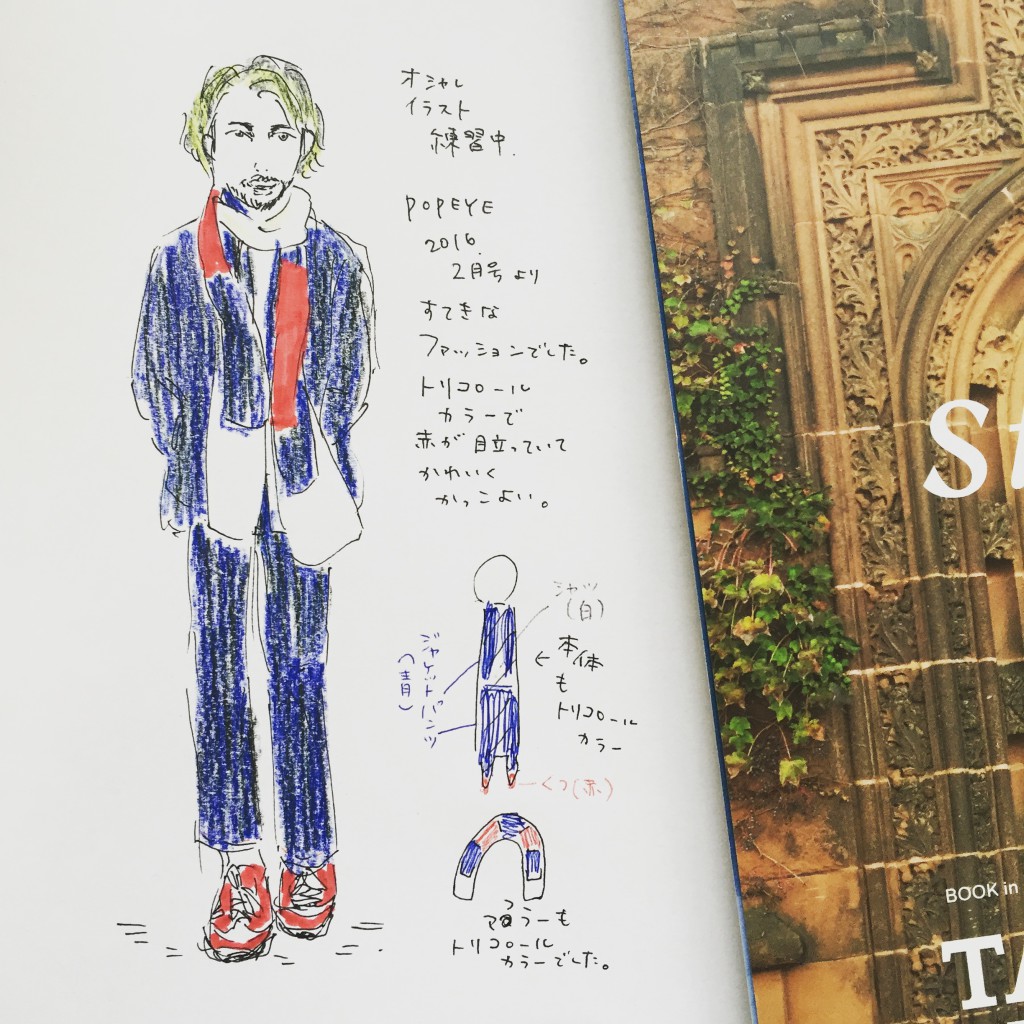 オシャレ
イラスト
練習中.
POPEYE
2016.
2月号より
すてきな
ファッションでした。
トリコロール
カラーで
赤が目立っていて
かわいく
かっこよい。
シャツ
(白)
ジャケット パンツ
(青)
←本体
も
トリコロール
カラー
くつ(赤)
マフラーも
トリコロール
カラーでした。
BOOK in